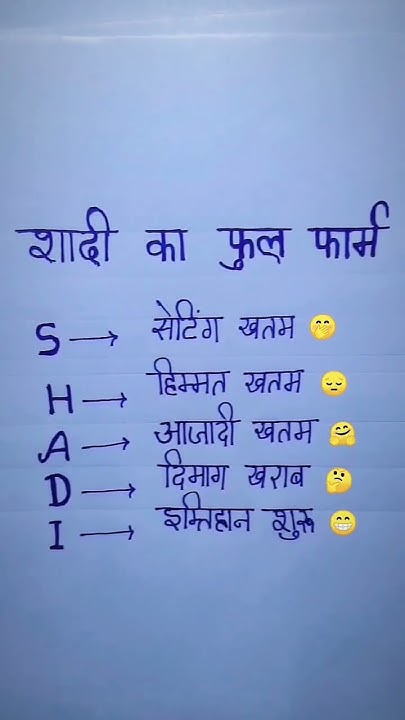 शादी का फुल फार्म
S → सेटिंग खतम 🤭
H → हिम्मत खतम 😔
A → आजादी खतम 🤗
D → दिमाग खराब 🤔
I → इम्तिहान शुरू 😁